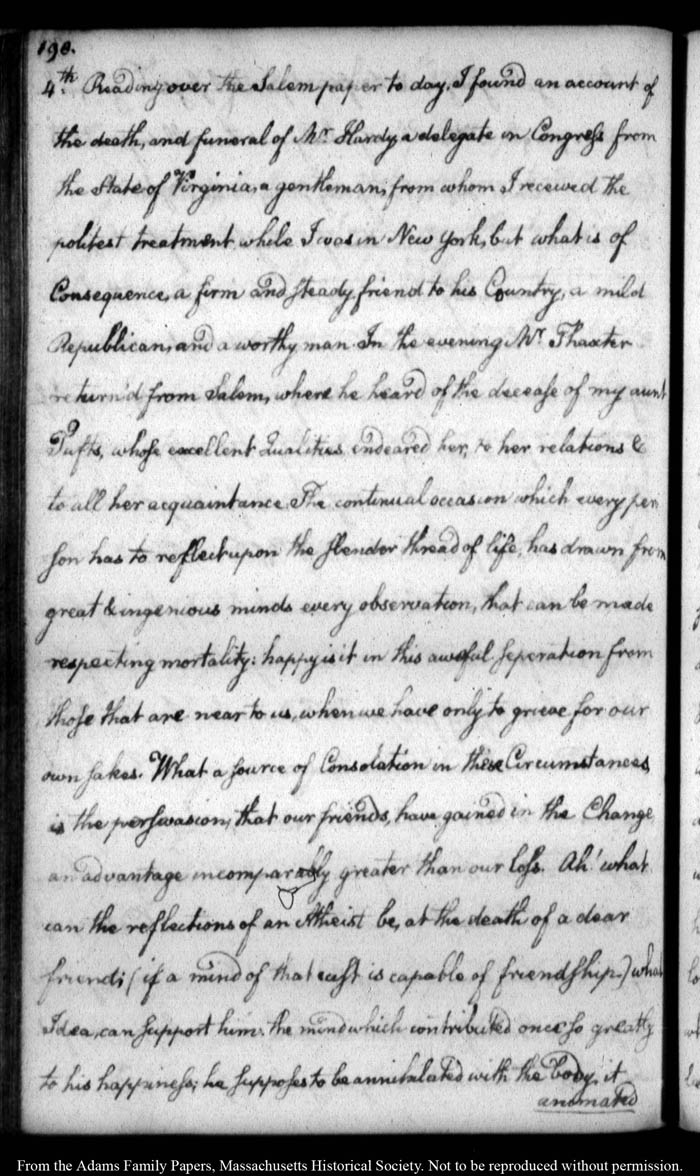 198.
4.th Reading over the Salem paper to day, I found an account of
the death, and funeral of Mr. Hardy, a delegate in Congress from
the State of Virginia, a gentleman, from whom I received the
politest treatment, while I was in New York, but what is of
Consequence, a firm and steady friend to his Country, a mild
Republican, and a worthy man. In the evening Mr. Thaxter
return'd from Salem, where he heard of the decease of my aunt
Tufts, whose excellent Qualities endeared her, to her relations &
to all her acquaintance. The continual occasion which every per
son has to reflect upon the slender thread of life, has drawn from
great & ingenious minds every observation, that can be made
respecting mortality: happy is it in this awful seperation from
those that are near to us, when we have only to grieve for our
own sakes. What a source of Consolation in these Circumstances,
is the perswasion, that our friends, have gained in the Change
an advantage incomparably greater than our loss. Ah! what
can the reflections of an Atheist be, at the death of a dear
friend; (if a mind of that cast is capable of friendship.) what
Idea, can support him: the mind which contributed once so greatly
to his happiness; he supposes to be annihilated with the body, it
animated
From the Adams Family Papers, Massachusetts Historical Society. Not to be reproduced without permission.